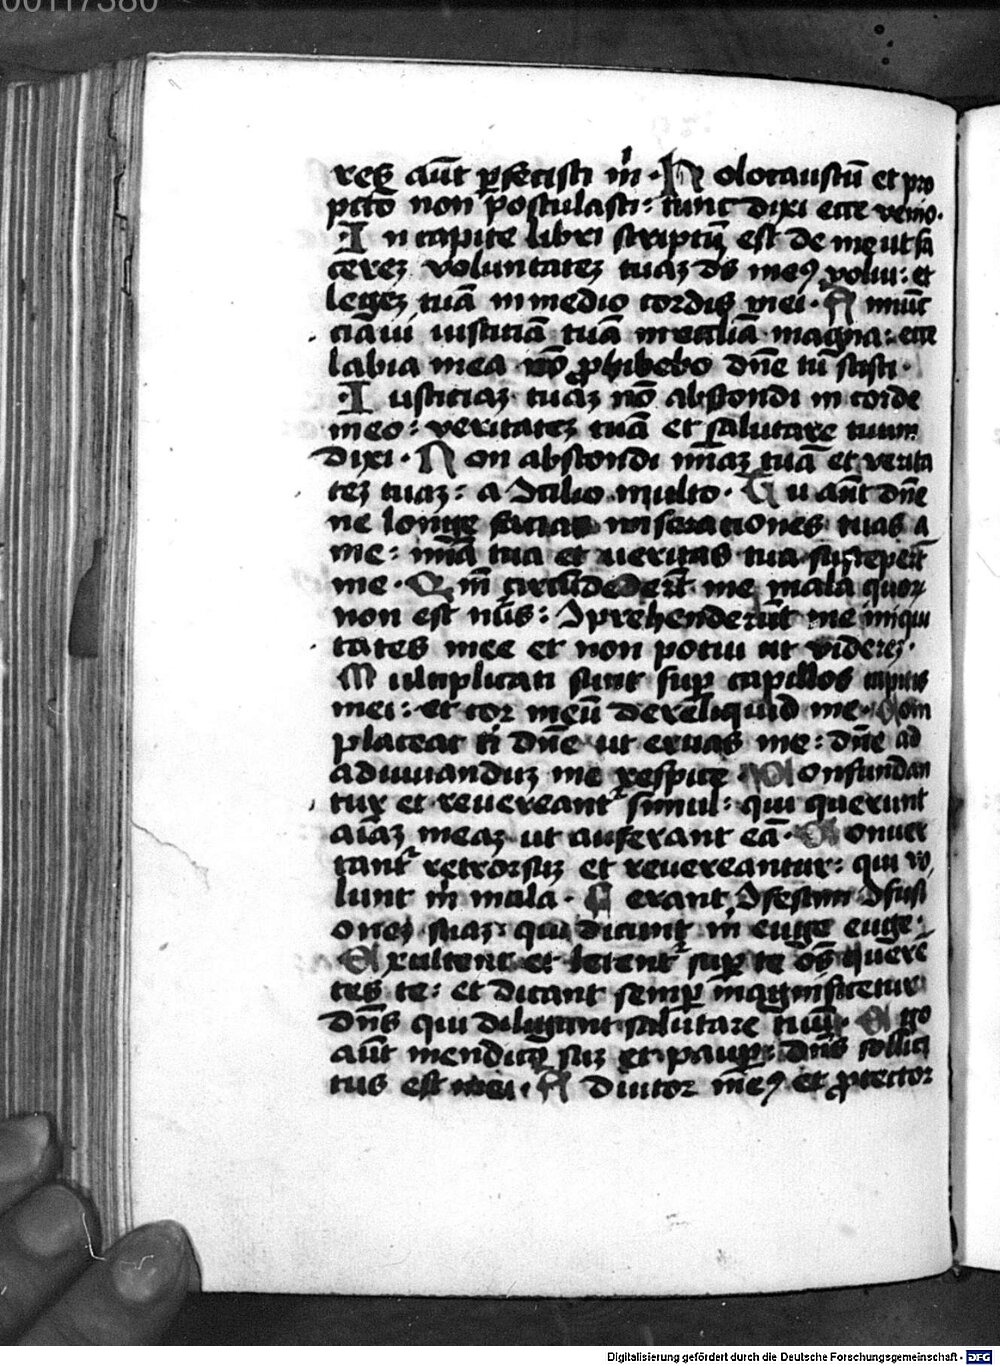 00117380
res aūt ꝑfecisti m̄ · Holocaustū et pro
pctō non postulasti : tunc dixi ecce venio ·
· In capite libri scriptū est de me ut fa
cerez voluntatez tuaz ds meꝰ volui : et
legez tuā in medio cordis mei · Annūc
ciāui iusticiā tuā in ecclīa magna : ecce
labia mea nō ꝓhibebo dn̄e tū scisti ·
· Iusticiaz tuaz nō abscondi in corde
meo : veritatez tuā et salutare tuum
dixi · Non abscondi mīaz tuā et verita
tez tuaz : a ꝯcilio multo · Tu aūt dn̄e
ne longe facias miseraciones tuas a
me : mīa tua et ueritas tua susceper̄t
me · Qm̄ circūdeder̄t me mala quoꝝ
non est nūs : ꝯprehenderūt me iniqui
tates mee et non potui ut viderez ·
Multiplicati sunt suꝑ capillos capitis
mei : et cor meū dereliquid me · Com
placeat ti dn̄e ut eruas me : dn̄e ad
adiuuanduz me respice · Confundan
tur et reuereant᷑ simul : qui querunt
aīaz meaz ut auferant eā · Conuer
tant᷑ retrorsuz et reuereantur : qui vo
lunt m̄ mala · Ferant ꝯfestim ꝯfusi
onez suaz : qui dicunt m̄ euge euge ·
Exultent et letent᷑ suꝑ te oēs quere
tes te : et dicant semꝑ magnificetur
dn̄s qui diligunt salutare tuū · Ego
aūt mendicꝰ suz et pauꝑ : dn̄s sollici
tus est mei · Adiutor meꝰ et ꝓtector
Digitalisierung gefördert durch die Deutsche Forschungsgemeinschaft - DFG